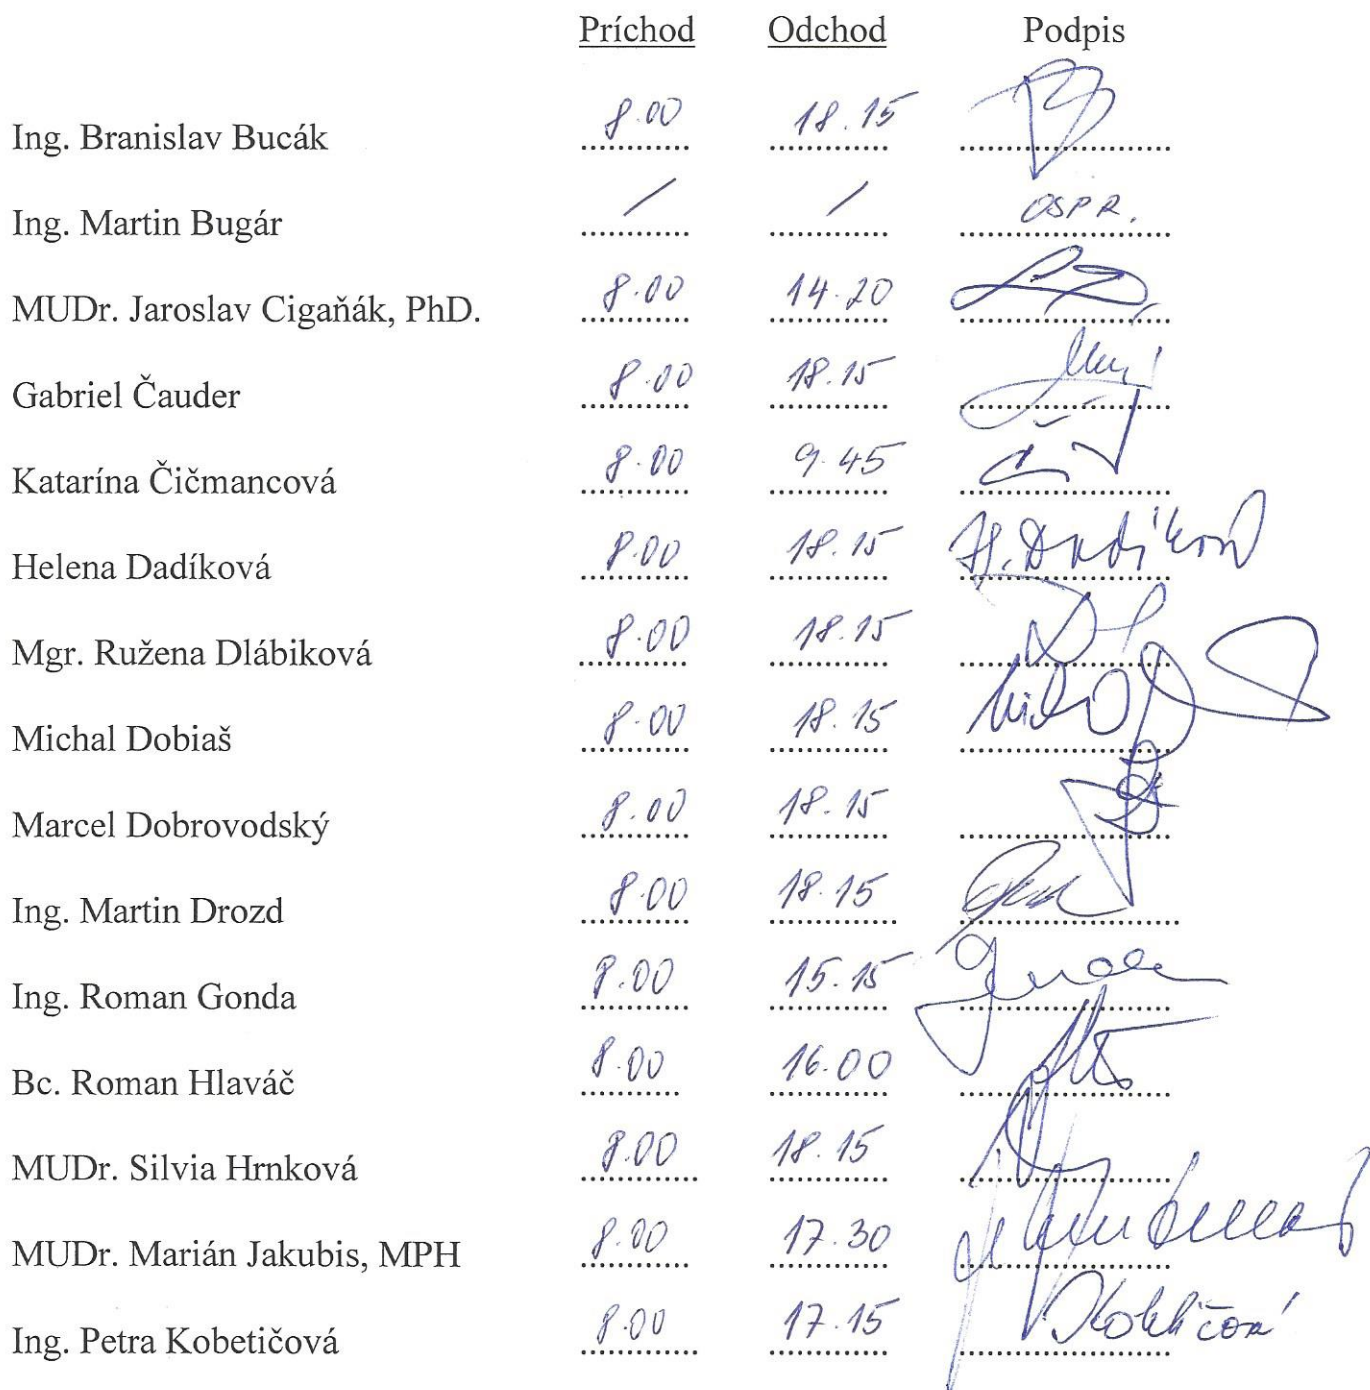 Príchod Odchod Podpis
Ing. Branislav Bucák 8.00 18.15
Ing. Martin Bugár / / OSPR.
MUDr. Jaroslav Cigaňák, PhD. 8.00 14.20
Gabriel Čauder 8.00 18.15
Katarína Čičmancová 8.00 9.45
Helena Dadíková 8.00 18.15 H. Dadíková
Mgr. Ružena Dlábiková 8.00 18.15
Michal Dobiaš 8.00 18.15
Marcel Dobrovodský 8.00 18.15
Ing. Martin Drozd 8.00 18.15
Ing. Roman Gonda 8.00 15.15
Bc. Roman Hlaváč 8.00 16.00
MUDr. Silvia Hrnková 8.00 18.15
MUDr. Marián Jakubis, MPH 8.00 17.30
Ing. Petra Kobetičová 8.00 17.15